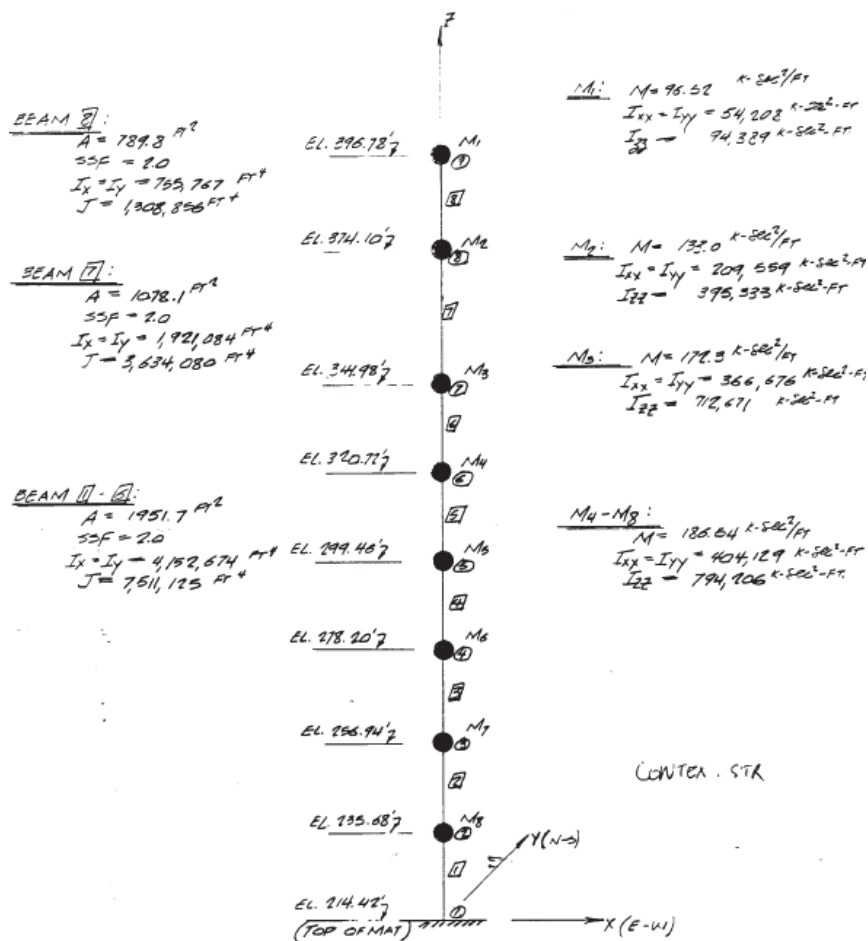 Z
BEAM 8:
A = 789.8 FT²
SSF = 2.0
Ix = Iy = 755,767 FT⁴
J = 1,308,856 FT⁴
BEAM 7:
A = 1078.1 FT²
SSF = 2.0
Ix = Iy = 1,921,084 FT⁴
J = 3,634,080 FT⁴
BEAM 1 - 6:
A = 1951.7 FT²
SSF = 2.0
Ix = Iy = 4,152,674 FT⁴
J = 7,511,125 FT⁴
EL. 396.78'
M1
9
8
EL. 374.10'
M2
8
7
EL. 344.98'
M3
7
6
EL. 320.72'
M4
6
5
EL. 299.46'
M5
5
4
EL. 278.20'
M6
4
3
EL. 256.94'
M7
3
2
EL. 235.68'
M8
2
1
EL. 214.42'
1
(TOP OF MAT)
Y (N-S)
X (E-W)
M1: M = 96.52 K-SEC²/FT
Ixx = Iyy = 54,208 K-SEC²-FT
Izz = 94,389 K-SEC²-FT
M2: M = 133.0 K-SEC²/FT
Ixx = Iyy = 209,559 K-SEC²-FT
Izz = 395,333 K-SEC²-FT
M3: M = 172.3 K-SEC²/FT
Ixx = Iyy = 366,676 K-SEC²-FT
Izz = 712,671 K-SEC²-FT
M4-M8:
M = 186.64 K-SEC²/FT
Ixx = Iyy = 404,129 K-SEC²-FT
Izz = 794,206 K-SEC²-FT
CONTEX. STR